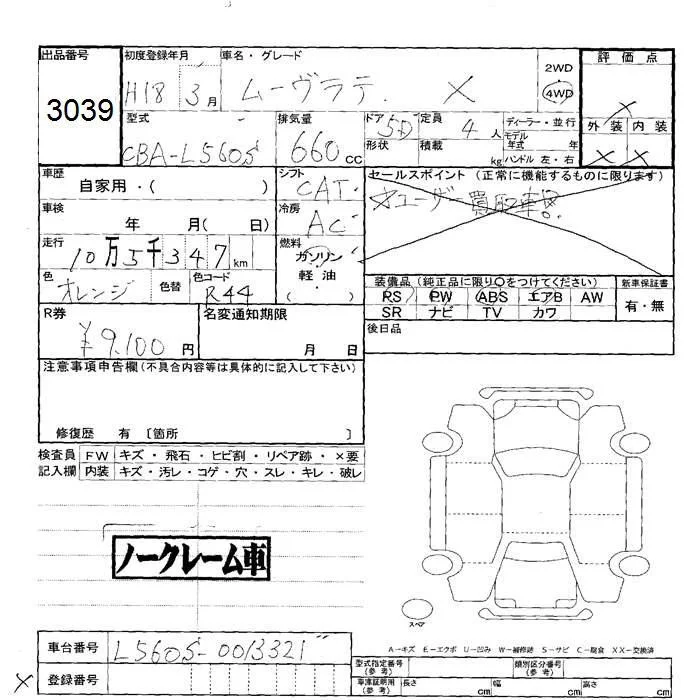 出品番号 初度登録年月 車名・グレード 評価点
3039 H18 3月 ムーヴラテ X 2WD 4WD
型式 排気量 ドア 5D 定員 4人 ディーラー・並行 外装 内装
CBA-L560S 660cc 形状 積載 kg モデル年式 年 ハンドル 左・右 X X
車歴 シフト セールスポイント (正常に機能するものに限ります)
自家用・( ) CAT ユーザー買取車!!
車検 冷房
年 月( 日) AC
走行 燃料
10万5千347km ガソリン
色 色替 色コード 軽油 装備品 (純正品に限り○をつけてください) 新車保証書
オレンジ R44 ( ) PS PW ABS エアB AW 有・無
R券 名変通知期限 SR ナビ TV カワ
¥9,100円 月 日 後日品
注意事項申告欄(不具合内容等は具体的に記入して下さい)
修復歴 有 〔箇所 〕
検査員 FW キズ・飛石・ヒビ割・リペア跡・×要
記入欄 内装 キズ・汚レ・コゲ・穴・スレ・キレ・破レ
ノークレーム車
スペア
A―キズ E―エクボ U―凹み W―補修跡 S―サビ C―腐食 XX―交換済
車台番号 L560S-0013321
型式指定番号(参考) 類別区分番号(参考)
X 登録番号 車庫証明用(参考) 長さ cm 幅 cm 高さ cm